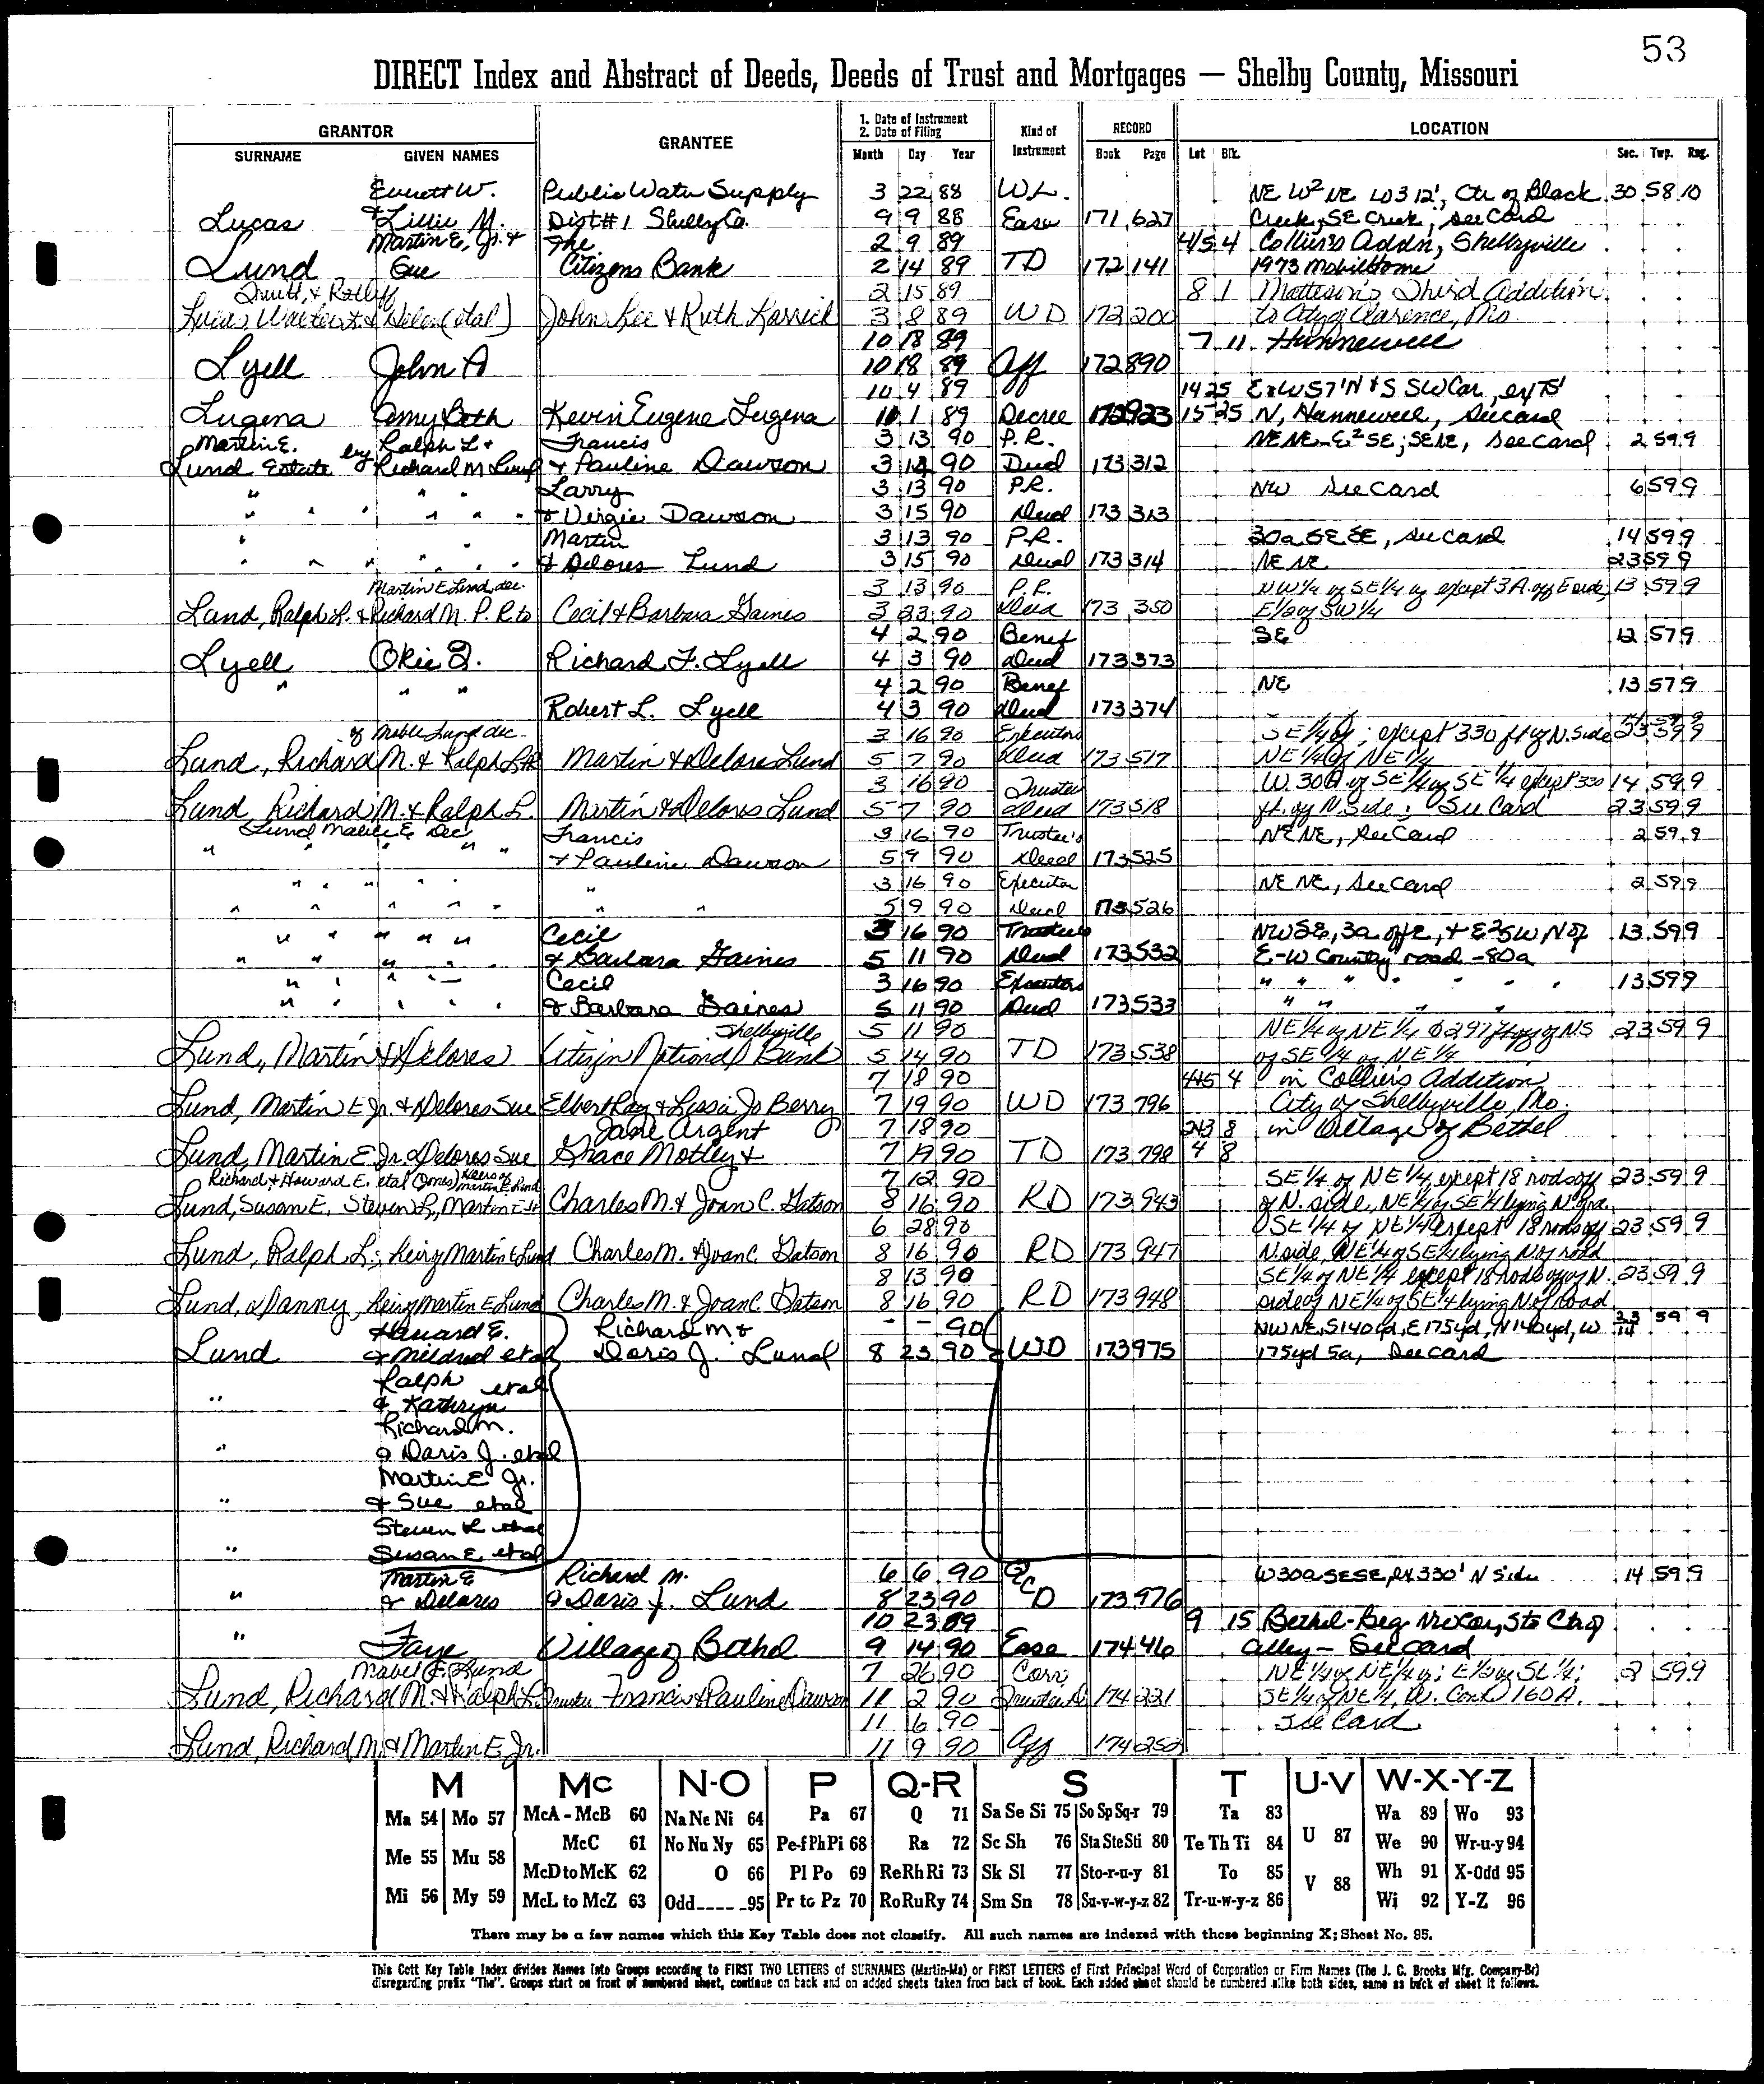 53
DIRECT Index and Abstract of Deeds, Deeds of Trust and Mortgages — Shelby County, Missouri
GRANTOR GRANTEE 1. Date of Instrument 2. Date of Filing Kind of Instrument RECORD LOCATION
SURNAME GIVEN NAMES Month Day Year Book Page Lot Blk. Sec. Twp. Rng.
Everett W. Public Water Supply 3 22 88 W.L. NE W² NE W312', Ctr of Black 30 58 10
Lucas & Lillie M. Dist #1 Shelby Co. 9 9 88 Ease 171 627 Creek, SE Creek, see Card
Martin E, Jr. & The 2 9 89 4/5 4 Collier's Addn, Shelbyville
Lund Sue Citizens Bank 2 14 89 TD 172 141 1973 Mobil Home
2 15 89 8 1 Matteson's Third Addition
Lucas Walter & Helen (etal) John Lee & Ruth 3 8 89 WD 172 200 to City of Clarence, Mo.
10 18 89 7 11 Hunnewell
Lyell John A 10 18 89 Aff 172 890
10 4 89 14 25 SW Cor, ex 75'
Lugena Amy Beth Kevin Eugene Lugena 10 1 89 Decree 172 923 15 25 N, Hunnewell, see card
Martin E. by Ralph L & Francis 3 13 90 P.R. NENE-E²SE; SENE, see Card 2 59 9
Lund Estate Richard M Lund & Pauline Dawson 3 14 90 Deed 173 312
" " " Larry 3 13 90 P.R. NW See Card 6 59 9
" " " " " " & Virgie Dawson 3 15 90 Deed 173 313
" Martin 3 13 90 P.R. 30a SE SE, see card 14 59 9
" " " " " " & Delores Lund 3 15 90 Deed 173 314 NE NE 23 59 9
Martin E Lund, dec. 3 13 90 P.R. NW1/4 of SE1/4 of except 3 A. off E side; 13 59 9
Lund, Ralph L. & Richard M. P.R. to Cecil & Barbara Gaines 3 23 90 Deed 173 350 E1/2 of SW1/4
4 2 90 Benef SE 12 57 9
Lyell Okie I. Richard F. Lyell 4 3 90 Deed 173 373
" " " 4 2 90 Benef NE 13 57 9
Robert L. Lyell 4 3 90 Deed 173 374
of Mable Lund dec. 3 16 90 Executors SE1/4 of ; except 330 ft of N. Side 23 59 9
Lund, Richard M. & Ralph L. Martin & Delores Lund 5 7 90 Deed 173 517 NE1/4 of NE1/4
3 16 90 Trustee W. 30A of SE1/4 of SE1/4 except 330 14 59 9
Lund, Richard M. & Ralph L. Martin & Delores Lund 5 7 90 Deed 173 518 ft. of N. Side; See Card 23 59 9
Lund Mabel E Dec Francis 3 16 90 Trustee's NENE, See Card 2 59 9
" " " " " & Pauline Dawson 5 9 90 Deed 173 525
" " " " " " 3 16 90 Executor NE NE, See Card 2 59 9
" " " " " " " 5 9 90 Deed 173 526
" " " " " Cecil 3 16 90 Trustees NWSE, 3a off E, + E²SW N of 13 59 9
" " " " " & Barbara Gaines 5 11 90 Deed 173 532 E-W County road -80a
" " " " Cecil 3 16 90 Executors " " " " " " " 13 59 9
" " " " " & Barbara Gaines 5 11 90 Deed 173 533 " " " "
Shelbyville 5 11 90 NE1/4 of NE1/4 297 of NS 23 59 9
Lund, Martin & Delores Citizen National Bank 5 14 90 TD 173 538 of SE1/4 of NE1/4
7 18 90 4&5 4 in Collier's Addition
Lund, Martin E Jr. & Delores Sue Elbert Ray & Lissia Jo Berry 7 19 90 WD 173 796 City of Shelbyville, Mo.
Jane Argent 7 18 90 2&3 8 in Village of Bethel
Lund, Martin E Jr. & Delores Sue Grace Motley & 7 19 90 TD 173 798 4 8
Richard & Howard E. etal (Jones) Heirs of Martin E Lund 7 12 90 SE1/4 of NE1/4, except 18 rods off 23 59 9
Lund, Susan E, Steven L, Martin E Jr Charles M. & Joan C. Gatson 8 16 90 RD 173 943 of N. side, NE1/4 of SE1/4 lying N of rd.
6 28 90 SE1/4 of NE1/4 except 18 rods off 23 59 9
Lund, Ralph L.; heir of Martin E Lund Charles M. & Joan C. Gatson 8 16 90 RD 173 947 N. side, NE1/4 of SE1/4 lying N of road
8 13 90 SE1/4 of NE1/4 except 18 rods off of N. 23 59 9
Lund, Danny, heir of Martin E Lund Charles M. & Joan C. Gatson 8 16 90 RD 173 948 side of NE1/4 of SE1/4 lying N of road
Howard E. Richard M & - - 90 NWNE, S140yd, E175yd, N140yd, W 23/14 59 9
Lund & Mildred etal Doris J. Lund 8 23 90 WD 173 975 175yd 5a, See card
Ralph etal
" & Kathryn
Richard M.
" & Doris J. etal
Martin E Jr.
" & Sue etal
Steven L etal
" Susan E. etal
Martin E Richard M. 6 6 90 QCD W30a SESE, ex 330' N side 14 59 9
" & Delores & Doris J. Lund 8 23 90 173 976
10 23 89 9 15 Bethel-Beg NW Cor, S to Ctr of
" Faye Village of Bethel 9 14 90 Ease 174 46 alley - See card
Mabel E. Lund 7 26 90 Corr. NE1/4 of NE1/4 of; E1/2 of SE1/4; 2 59 9
Lund, Richard M. & Ralph L. Trustee Francis & Pauline Dawson 11 2 90 Trustee D 174 221 SE1/4 of NE1/4, 160A.
11 6 90 See Card
Lund, Richard M. & Martin E, Jr. 11 9 90 Aff 174 252
M Mc N-O P Q-R S T U-V W-X-Y-Z
Ma 54 Mo 57 McA - McB 60 Na Ne Ni 64 Pa 67 Q 71 Sa Se Si 75 So Sp Sq-r 79 Ta 83 Wa 89 Wo 93
McC 61 No Nu Ny 65 Pe-f Ph Pi 68 Ra 72 Sc Sh 76 Sta Ste Sti 80 Te Th Ti 84 U 87 We 90 Wr-u-y 94
Me 55 Mu 58 McD to McK 62 O 66 Pl Po 69 Re Rh Ri 73 Sk Sl 77 Sto-r-u-y 81 To 85 Wh 91 X-Odd 95
Mi 56 My 59 McL to McZ 63 Odd 95 Pr to Pz 70 Ro Ru Ry 74 Sm Sn 78 Su-v-w-y-z 82 Tr-u-w-y-z 86 V 88 Wi 92 Y-Z 96
There may be a few names which this Key Table does not classify. All such names are indexed with those beginning X; Sheet No. 95.
This Cott Key Table Index divides Names into Groups according to FIRST TWO LETTERS of SURNAMES (Martin-Ma) or FIRST LETTERS of First Principal Word of Corporation or Firm Names (The J. C. Brooks Mfg. Company-Br)
disregarding prefix "The". Groups start on front of numbered sheet, continue on back and on added sheets taken from back of book. Each added sheet should be numbered alike both sides, same as back of sheet it follows.